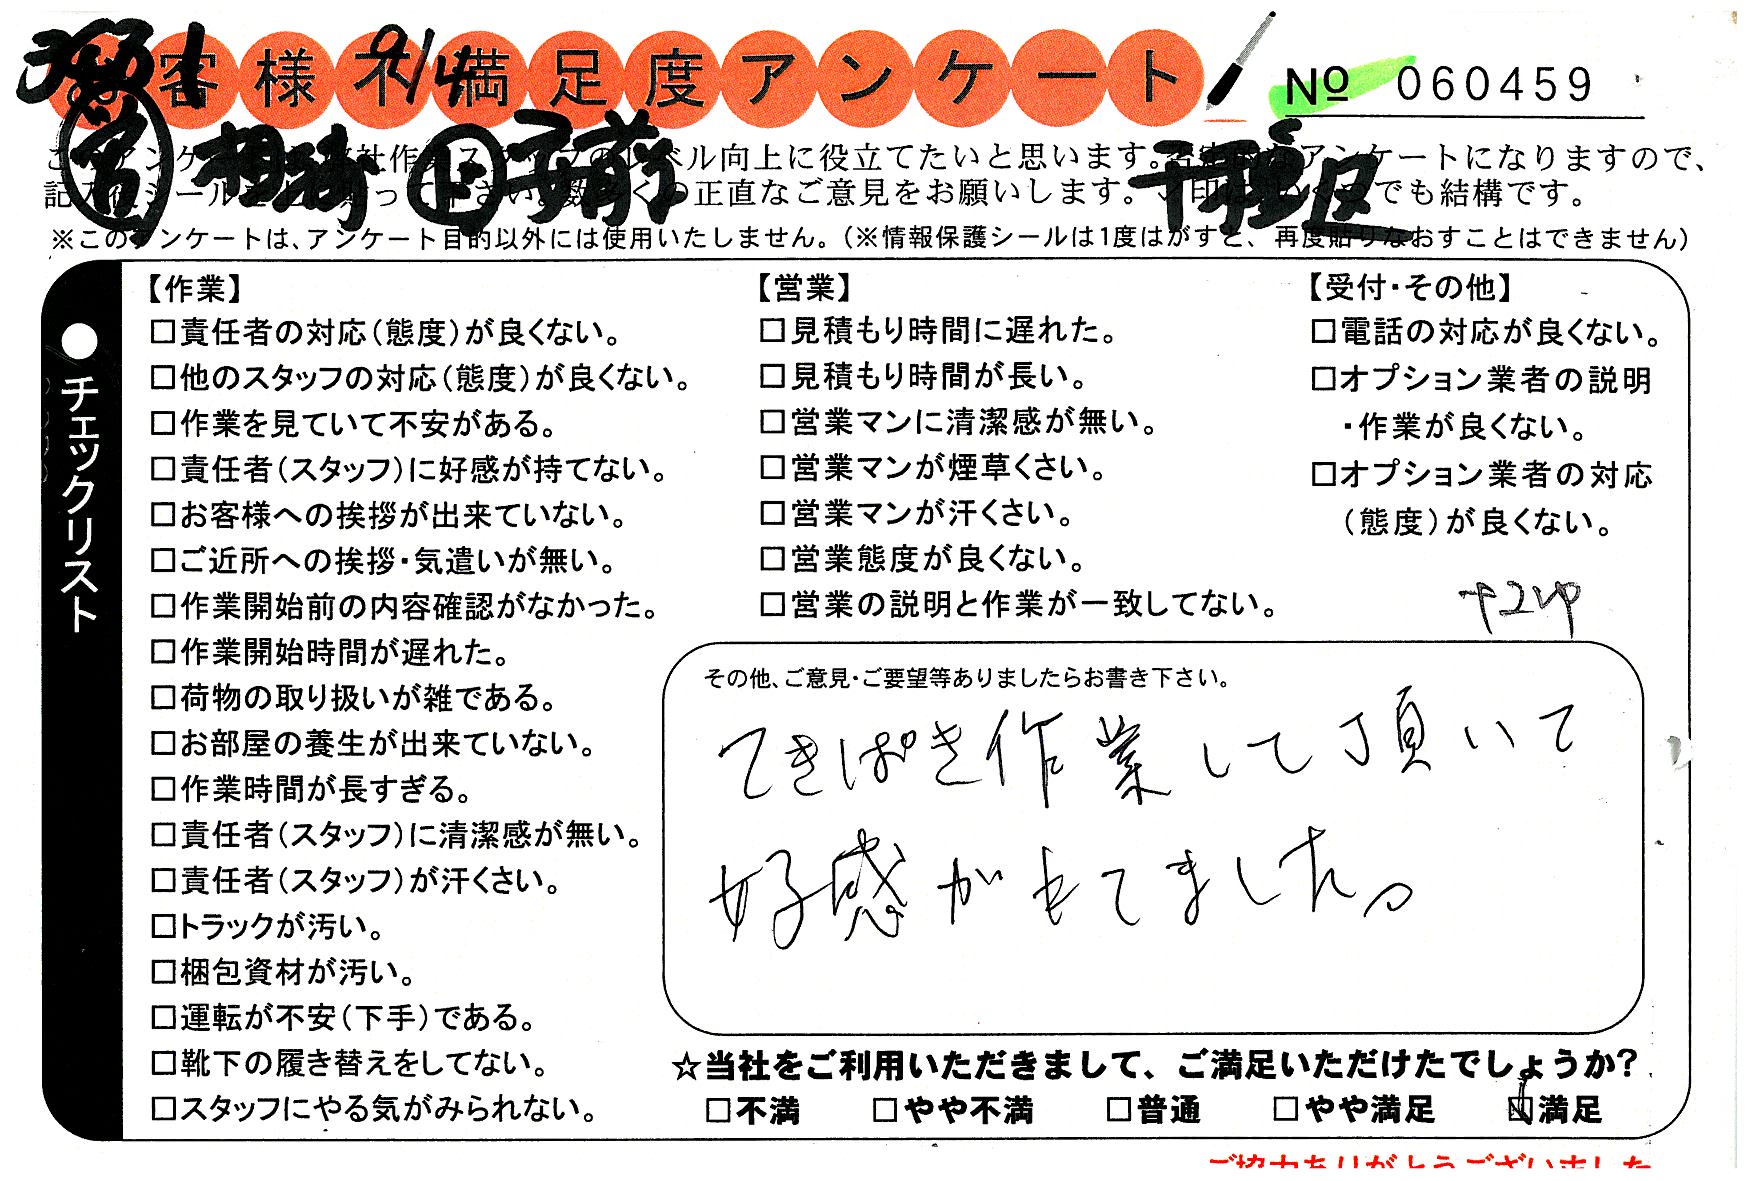 お客様不満足度アンケート
9/4
No 060459
このアンケートは、当社作業スタッフのレベル向上に役立てたいと思います。否定的なアンケートになりますので、
記入後シールを上に貼って下さい。数多くの正直なご意見をお願いします。✓印はいくつでも結構です。
千種区
※このアンケートは、アンケート目的以外には使用いたしません。(※情報保護シールは1度はがすと、再度貼りなおすことはできません)
●チェックリスト
【作業】
□責任者の対応(態度)が良くない。
□他のスタッフの対応(態度)が良くない。
□作業を見ていて不安がある。
□責任者(スタッフ)に好感が持てない。
□お客様への挨拶が出来ていない。
□ご近所への挨拶・気遣いが無い。
□作業開始前の内容確認がなかった。
□作業開始時間が遅れた。
□荷物の取り扱いが雑である。
□お部屋の養生が出来ていない。
□作業時間が長すぎる。
□責任者(スタッフ)に清潔感が無い。
□責任者(スタッフ)が汗くさい。
□トラックが汚い。
□梱包資材が汚い。
□運転が不安(下手)である。
□靴下の履き替えをしてない。
□スタッフにやる気がみられない。
【営業】
□見積もり時間に遅れた。
□見積もり時間が長い。
□営業マンに清潔感が無い。
□営業マンが煙草くさい。
□営業マンが汗くさい。
□営業態度が良くない。
□営業の説明と作業が一致してない。
【受付・その他】
□電話の対応が良くない。
□オプション業者の説明
・作業が良くない。
□オプション業者の対応
(態度)が良くない。
その他、ご意見・ご要望等ありましたらお書き下さい。
てきぱき作業して頂いて
好感がもてました。
☆当社をご利用いただきまして、ご満足いただけたでしょうか?
□不満 □やや不満 □普通 □やや満足 ☑満足
ご協力ありがとうございました